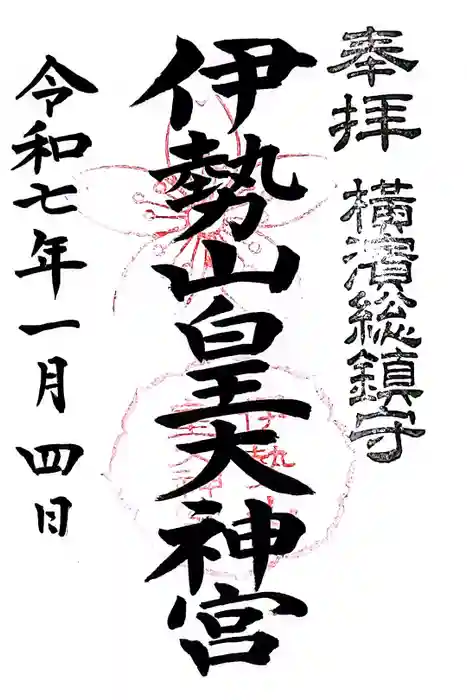 奉拝 横濱総鎮守
伊勢山皇大神宮
令和七年一月四日